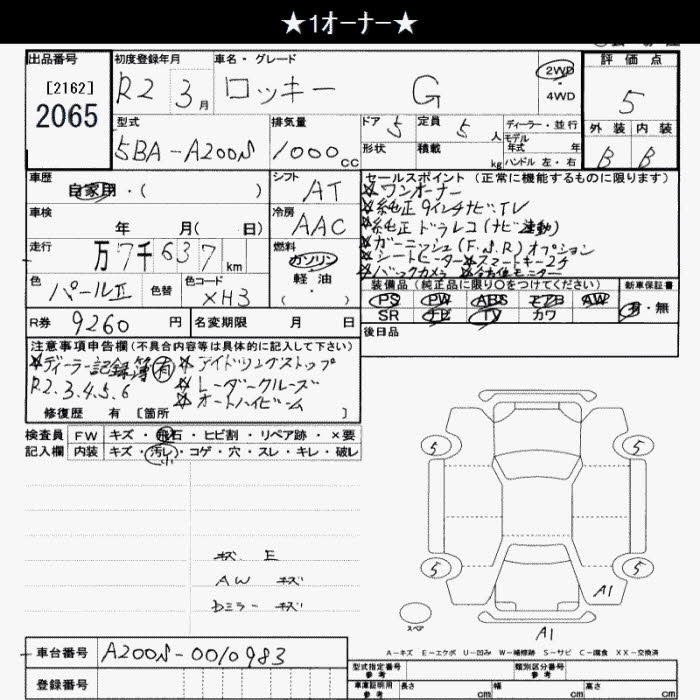 ★1オーナー★
出品番号
[2162]
2065
初度登録年月
R2 3月
車名・グレード
ロッキー G
2WD
・
4WD
評価点
5
外装 内装
B B
型式
5BA-A200S
排気量
1000cc
ドア 5
定員 5人
形状
積載 kg
ディーラー・並行
モデル年式 年
ハンドル 左・右
車歴
自家用・( )
シフト
AT
車検
年 月( 日)
冷房
AAC
走行
万7千637km
燃料
ガソリン
軽油
( )
色
パールⅡ
色替
色コード
XH3
セールスポイント(正常に機能するものに限ります)
☆ワンオーナー
☆純正9インチナビTV
☆純正ドラレコ(ナビ連動)
☆ガーニッシュ(F.S.R)オプション
☆シートヒーター☆スマートキー2ケ
☆バックカメラ ☆全方位モニター
装備品(純正品に限り○をつけてください)
PS PW ABS エアB AW
SR ナビ TV カワ
新車保証書
有・無
後日品
R券 9260円
名変期限 月 日
注意事項申告欄(不具合内容等は具体的に記入して下さい)
☆ディーラー記録簿有 ☆アイドリングストップ
R2.3.4.5.6 ☆レーダークルーズ
☆オートハイビーム
修復歴 有 [箇所 ]
検査員記入欄
FW キズ・飛石・ヒビ割・リペア跡・×要
内装 キズ・汚レ・コゲ・穴・スレ・キレ・破レ
キズ E
AW キズ
Dミラー キズ
5 5
5 5
A1
スペア
A1
A-キズ E-エクボ U-凹み W-補修跡 S-サビ C-腐食 XX-交換済
車台番号 A200S-0010983
登録番号
型式指定番号 参考
類別区分番号 参考
車庫証明用 参考 長さ cm 幅 cm 高さ cm